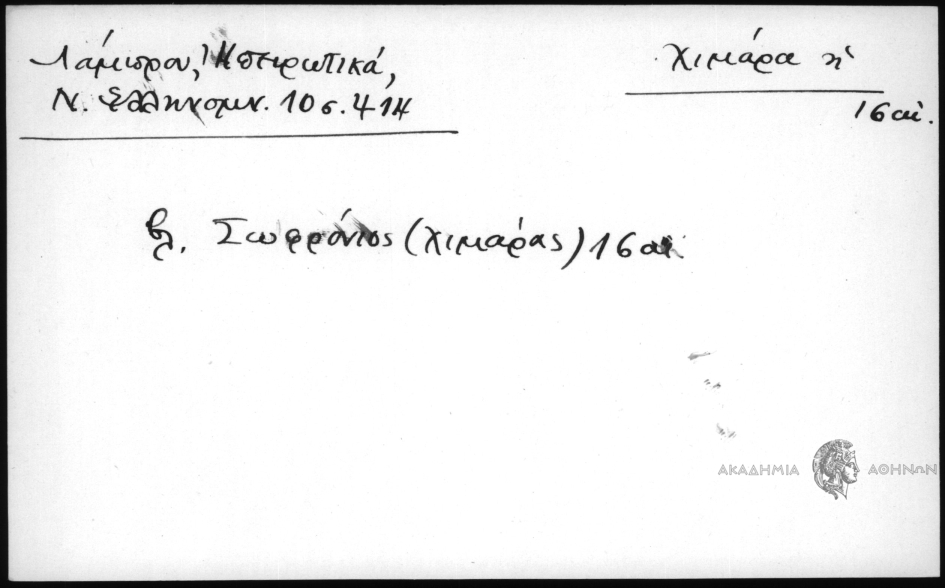 Λάμπρου, Ἠπειρωτικά,
Ν. Ἑλληνομν. 10 σ. 414
Χιμάρα ἡ
16 αἰ.
βλ. Σωφρόνιος (Χιμάρας) 16 αἰ
ΑΚΑΔΗΜΙΑ ΑΘΗΝΩΝ